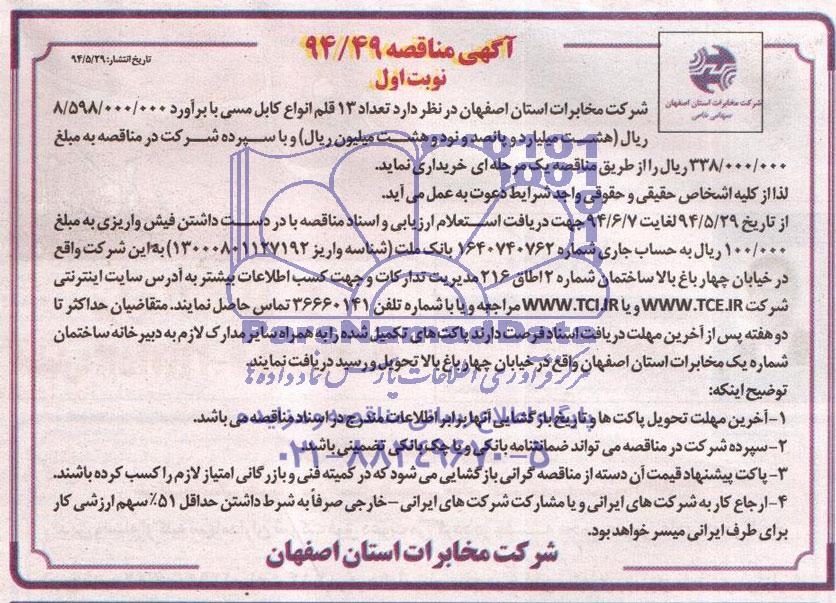 آگهی مناقصه ۹۴/۴۹
تاریخ انتشار: ۹۴/۵/۲۹
نوبت اول
شرکت مخابرات استان اصفهان
سهامی خاص
شرکت مخابرات استان اصفهان در نظر دارد تعداد ۱۳ قلم انواع کابل مسی با برآورد ۸/۵۹۸/۰۰۰/۰۰۰
ریال (هشت میلیارد و پانصد و نود و هشت میلیون ریال) و با سپرده شرکت در مناقصه به مبلغ
۳۳۸/۰۰۰/۰۰۰ ریال را از طریق مناقصه یک مرحله ای خریداری نماید.
لذا از کلیه اشخاص حقیقی و حقوقی واجد شرایط دعوت به عمل می آید.
از تاریخ ۹۴/۵/۲۹ لغایت ۹۴/۶/۷ جهت دریافت استعلام ارزیابی و اسناد مناقصه با در دست داشتن فیش واریزی به مبلغ
۱۰۰/۰۰۰ ریال به حساب جاری شماره ۱۶۴۰۷۴۰۷۶۲ بانک ملت (شناسه واریز ۱۳۰۰۰۸۰۱۱۲۷۱۹۲) به این شرکت واقع
در خیابان چهار باغ بالا ساختمان شماره ۲ اطاق ۲۱۶ مدیریت تدارکات و جهت کسب اطلاعات بیشتر به آدرس سایت اینترنتی
شرکت WWW.TCE.IR و یا WWW.TCI.IR مراجعه و یا با شماره تلفن ۳۶۶۶۰۱۴۱ تماس حاصل نمایند. متقاضیان حداکثر تا
دو هفته پس از آخرین مهلت دریافت اسناد فرصت دارند پاکت های تکمیل شده را به همراه سایر مدارک لازم به دبیرخانه ساختمان
شماره یک مخابرات استان اصفهان واقع در خیابان چهار باغ بالا تحویل و رسید دریافت نمایند.
توضیح اینکه:
۱- آخرین مهلت تحویل پاکت ها و تاریخ بازگشایی آنها برابر اطلاعات مندرج در اسناد مناقصه می باشد.
۲- سپرده شرکت در مناقصه می تواند ضمانتنامه بانکی و یا چک بانکی تضمینی باشد.
۳- پاکت پیشنهاد قیمت آن دسته از مناقصه گرانی بازگشایی می شود که در کمیته فنی و بازرگانی امتیاز لازم را کسب کرده باشند.
۴- ارجاع کار به شرکت های ایرانی و یا مشارکت شرکت های ایرانی - خارجی صرفاً به شرط داشتن حداقل ۵۱٪ سهم ارزشی کار
برای طرف ایرانی میسر خواهد بود.
شرکت مخابرات استان اصفهان
ParsNamadData
مرکز فرآوری اطلاعات پارس نماد داده ها
پایگاه اطلاع رسانی مناقصه و مزایده
۰۲۱-۸۸۳۴۹۶۷۰-۵